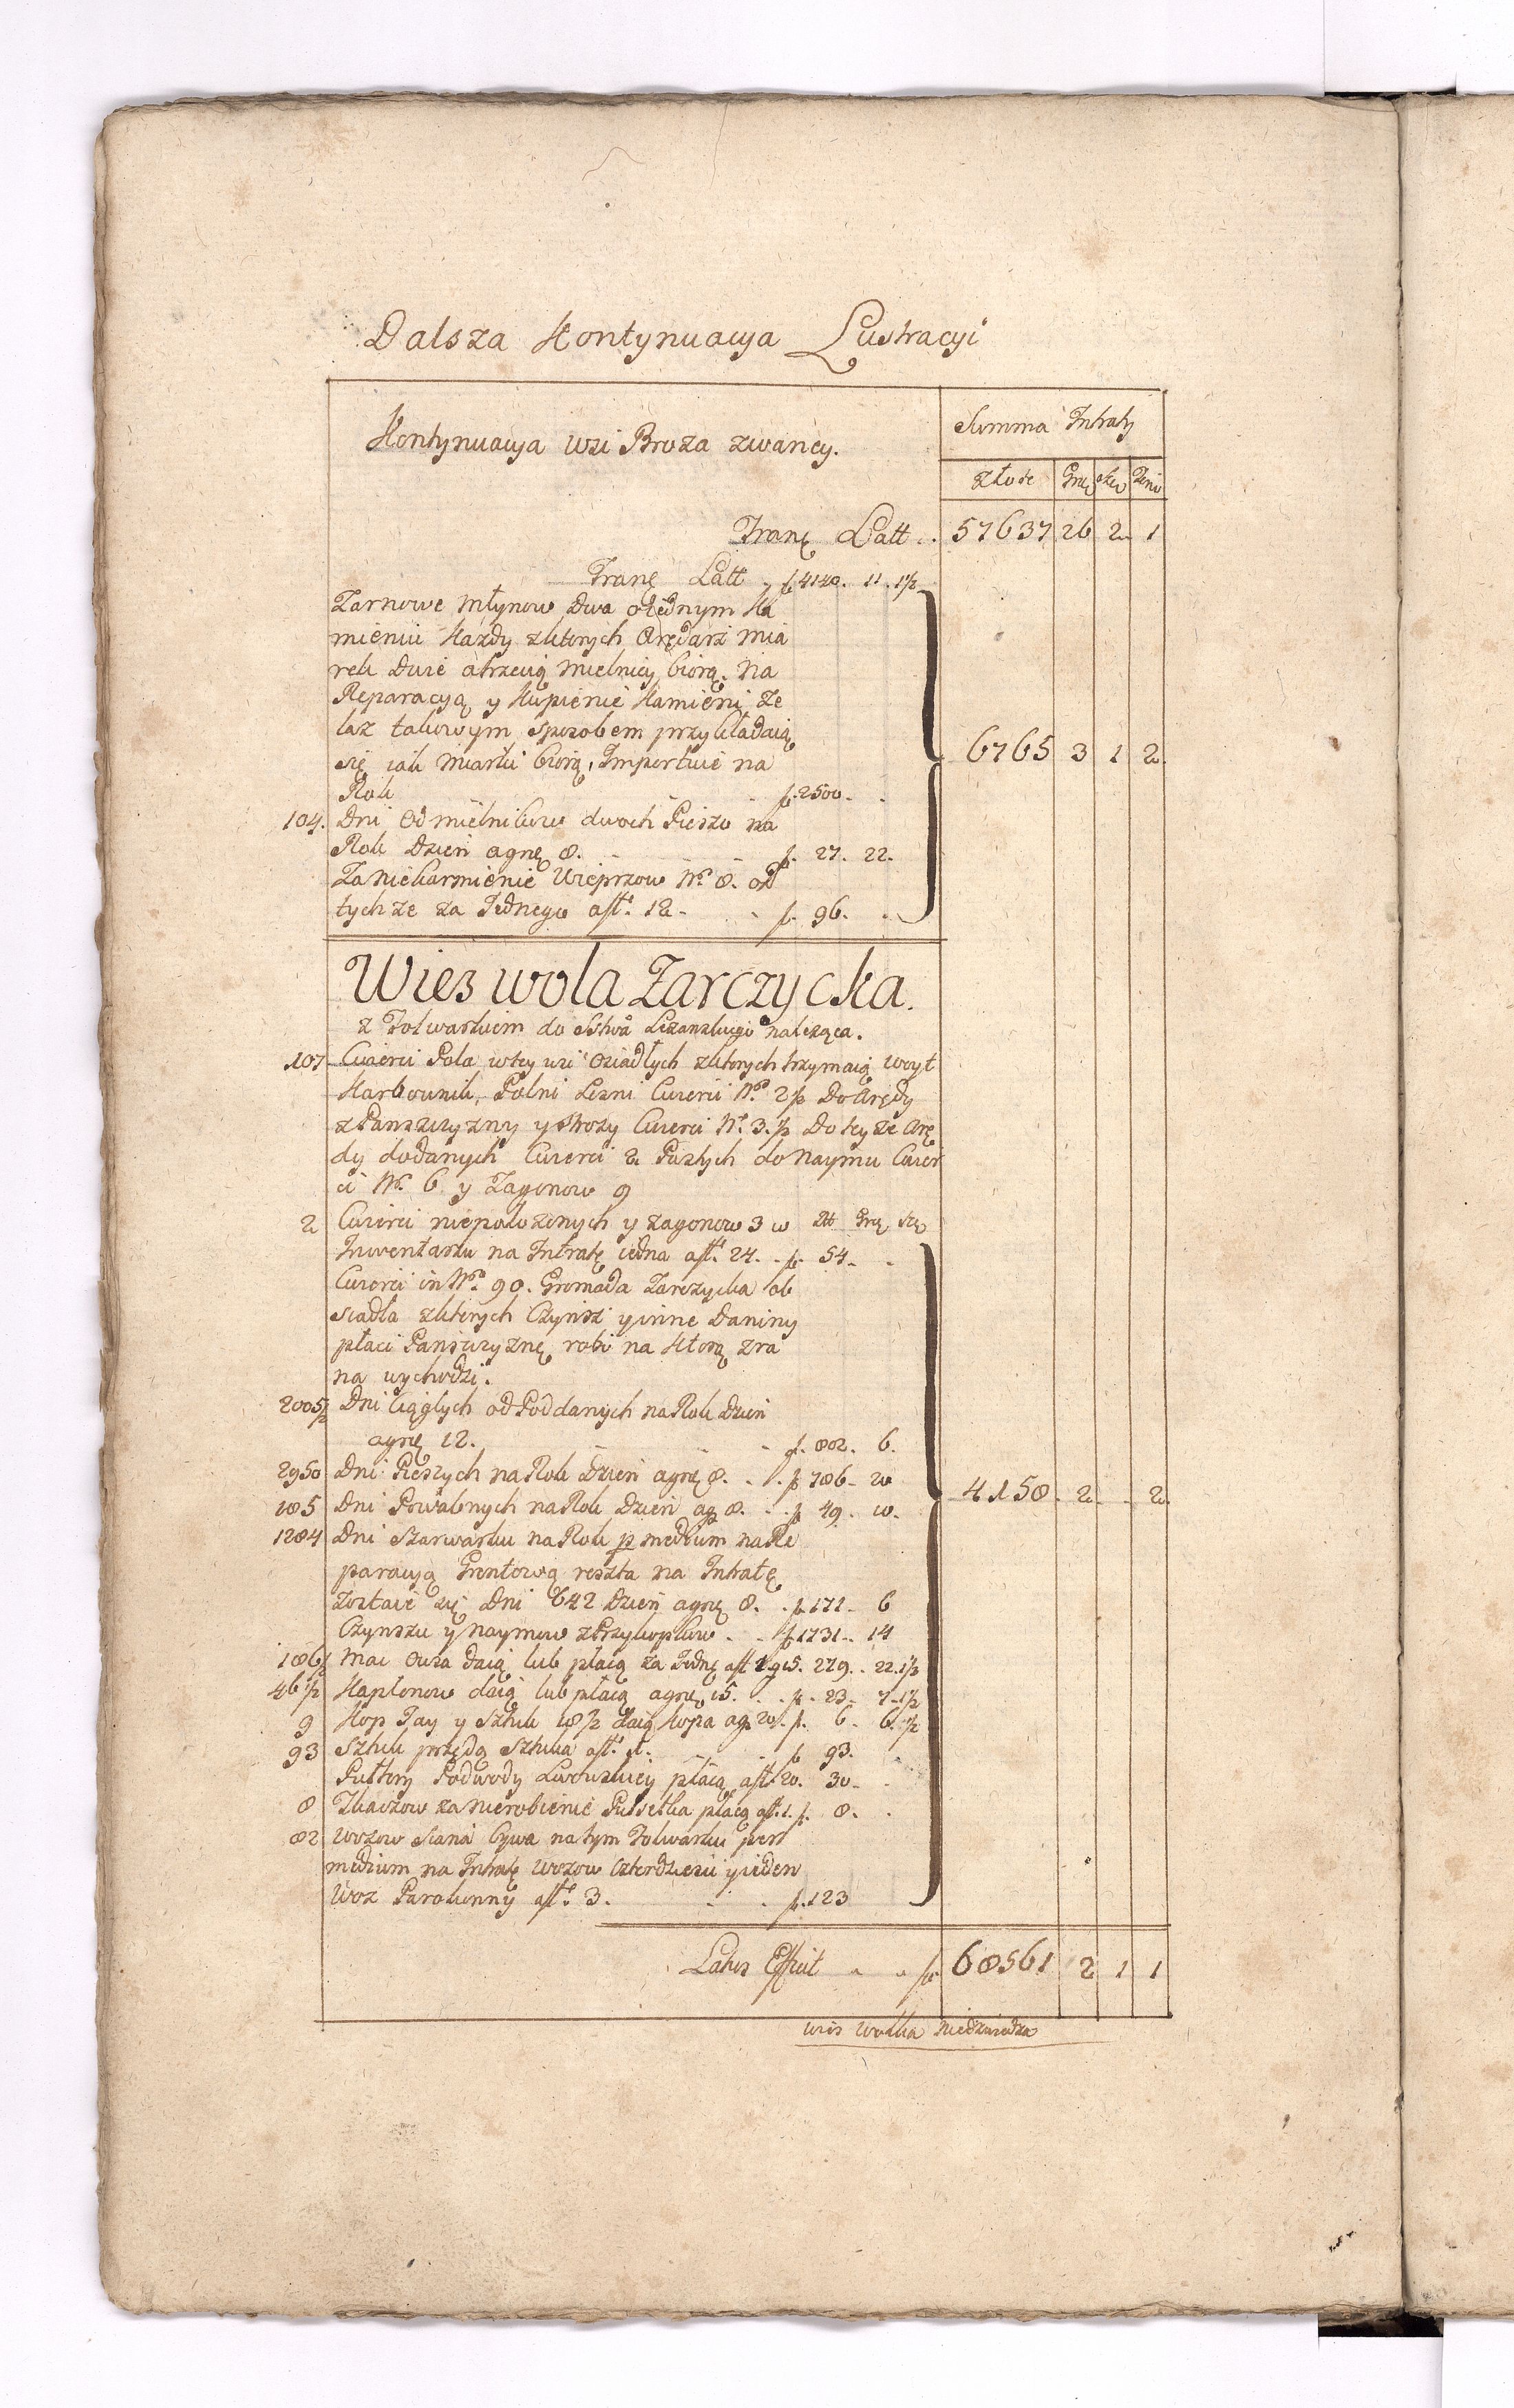 Dalsza Kontynuacya Lustracyi
Kontynuacya wsi Broza zwaney.
Summa Intraty
Złote Grzę Szę
Tranę Latt .. 57637 26 2 1
Tranę Latt f 4140. 11. 1½
Zarnowe Młynow Dwa o Iednym Ka
mieniu Każdy z ktorych Arędarz mia
rek Dwie a trzecią Mielnicy biorą. Na
Reparacyą y Kupienie Kamieni, Że
laz takowym sposobem przykładaią
się iak miarki biorą, Importuie na
Rok f. 2500.
6765 3 1 2
104. Dni Od mielnikow dwoch Pieszo na
Rok Dzień agrę 8. f. 27. 22.
Za Niekarmienie Wieprzow Nº 8. od
tychże za Jednego aflº 12 f. 96.
Wies Wola Zarczycka.
z Folwarkiem do Sstwa Leżanskiego należąca.
107 Cwierci Pola w tey wsi Osiadłych z ktorych trzymaią Woyt
Karbownik, Polni Lesni Cwierci Nº 2½ Do Arędy
z Panszczyzny y Strozy Cwierci Nº 3.½ Do teyże Arę
dy dodanych Cwierci 2 Pustych do Naymu Cwier
ci Nº 6 y Zagonow 9
2 Cwierci niepołozonych y zagonow 3 w Zł Grę Szę
Inwentarzu na Intratę iedna aflº 24. f. 54.
Cwierci in Nº 90. Gromada Zarczycka ob
siadła z ktorych Czynsz y inne Daniny
płaci Panszczyznę robi na Ktorą z ra
na wychodzi.
2005½ Dni Ciągłych od Poddanych na Rok Dzień
agrę 12. f. 802. 6.
2950 Dni Pieszych na Rok Dzień agrę 8. f 786. 20
4158. 2. . 2.
185 Dni Powabnych na Rok Dzień ag 8. f 49. 10.
1284 Dni Szarwarku na Rok p medium na Re
paracyą Grontową reszta na Intratę
zostaie się Dni 642 Dzień agrę 8. f. 171. 6
Czynszu y Naymow z Przykopkow f. 1731. 14
186½ Mac Owsa daią lub płacą za Jedną afl 1 g 15. 279. 22.1½
46½ Kapłonow daią lub płacą agrę 15. f. 23. 7.1½
9 Kop Jay y Sztuk 18½ daią Kopa ag 20. f. 6. 6.½
93 Sztuk przędą Sztuka aflº 1. f 93.
Pułtory Podwody Lwowskiey płacą aflº 20. 30.
8 Tkaczow za nierobienie Pułsetka płacą afl. 1. f. 8.
82 Wozow Siana bywa na tym Folwarku per
medium na Intratę Wozow Czterdziesci y ieden
Woz Parokonny aflº 3. f. 123
Latus Efficit f 68561 2 1 1
Wies Wolka Niedzwiedzka